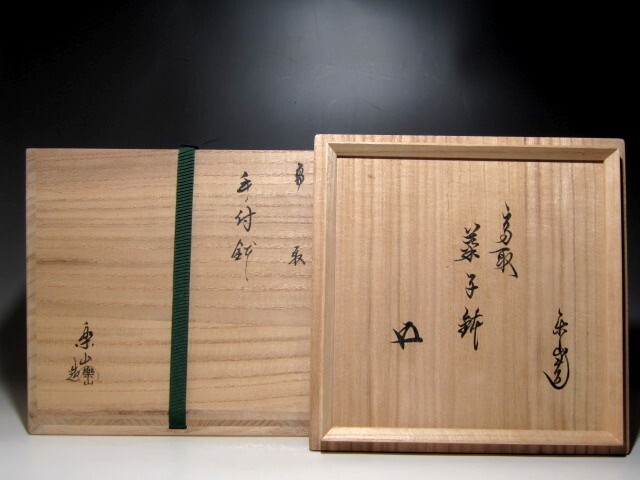 高取
手付鉢
楽山造
樂山
高取
菓子鉢
楽山造